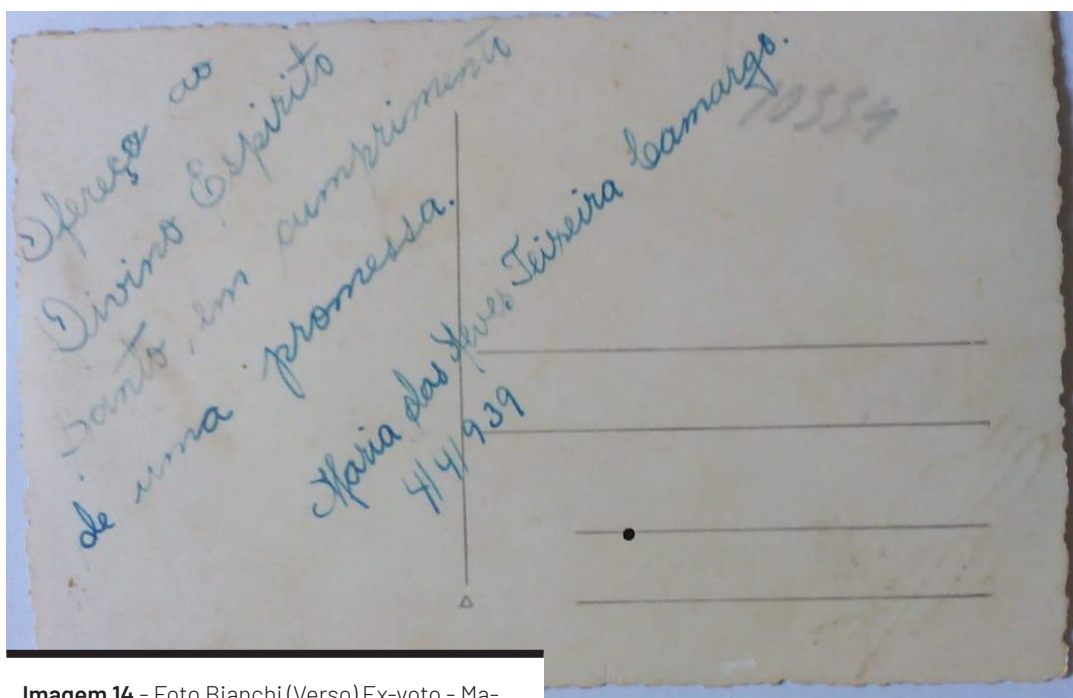 Ofereço ao
Divino Espirito
Santo, em cumprimento
de uma promessa.
Maria das Neves Teixeira Camargo.
4/4/939
10334
Imagem 14 - Foto Bianchi (Verso) Ex-voto - Ma-